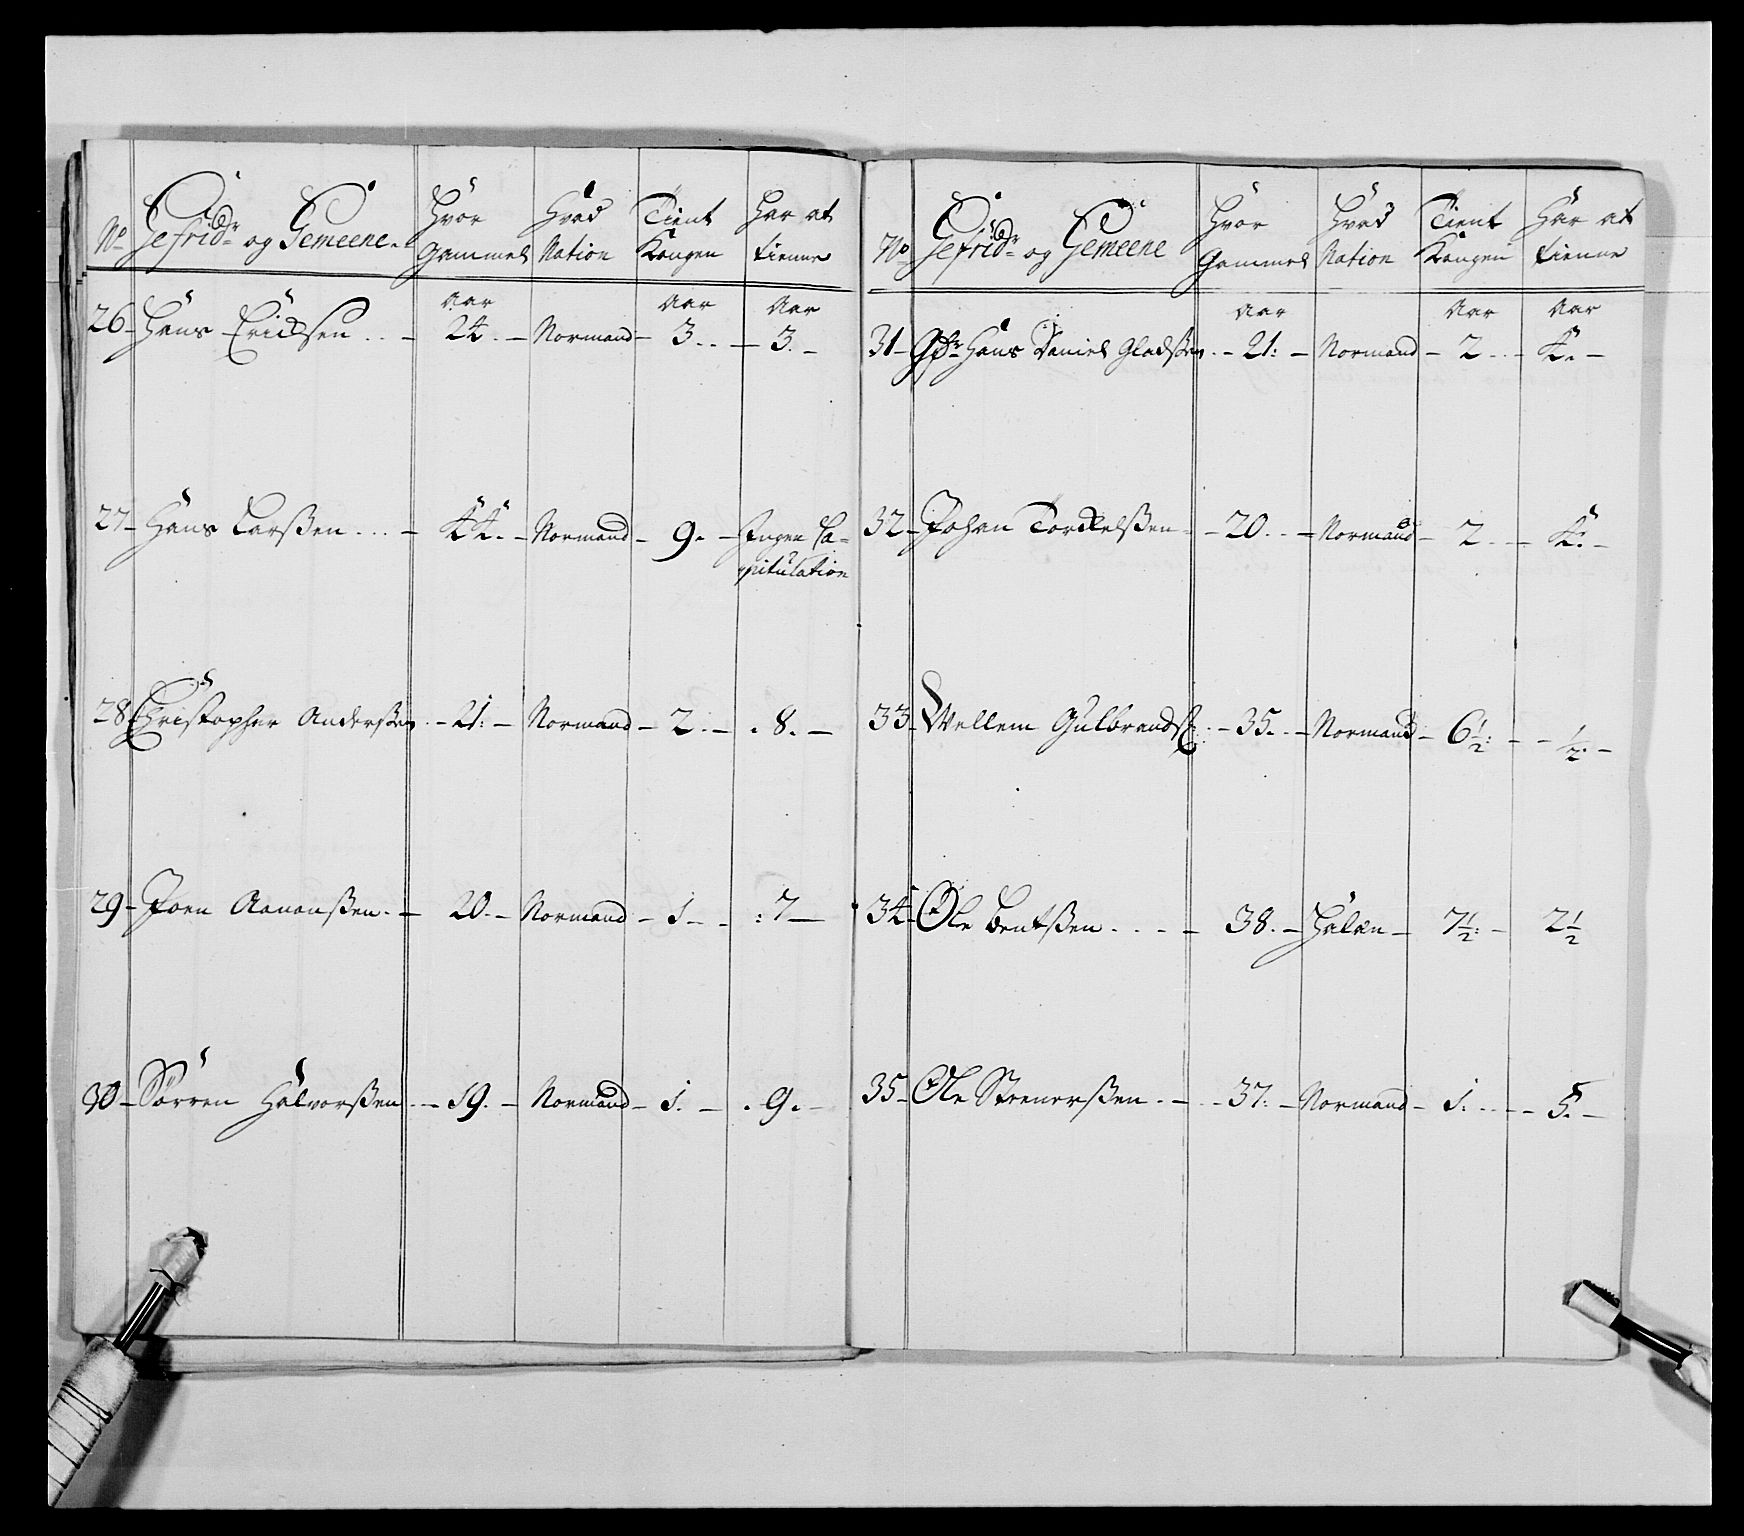 No Gefrid:r og Gemeene. Hvor Gammel Hvad Nation Tient Kongen Har at tienne
Aar Aar Aar
26 Hans Ericksen 24 Normand 3 3
27 Hans Larßen 44 Normand 9 Ingen Ca-
pitulation
28 Christopher Anderßen 21 Normand 2 8
29 Joen Aananßen 20 Normand 1 7
30 Sörren Halvorßen 19 Normand 1 9
No Gefrid:r og Gemeene Hvor Gammel Hvad Nation Tient Kongen Har at tienne
Aar Aar Aar
31 Gfr Hans Daniel Gladßen 21 Normand 2 4
32 Johan Torckelßen 20 Normand 2 4
33 Wellem Gulbrandß 35 Normand 6 1/2 1/2
34 Ole Bentßen 38 7 1/2 2 1/2
35 Ole Steenerßen 37 Normand 1 5